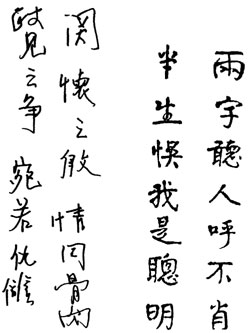 兩字聽人呼不肖
半生悞我是聰明
関懷之殷 情同骨肉
歧見之争 宛若仇讎